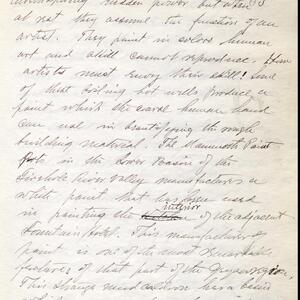 hidden power but when
at rest they assume the function of an
artist. They paint in colors human
art and skill cannot reproduce. How
artists must envy their skill! Some
of the boiling hot wells produce a
paint which the human hand
can use in beautifying the
building material. The Mammoth Paint
Pots in the Lower Basin of the
Firehole River Valley manufactures a
white paint that has been used
interior
in painting the of the adjacent
Fountain Hotel. This manufactured
paint is one of the most remarkable
features of that part of the Geyser region.
This strange mud caldron have a basin